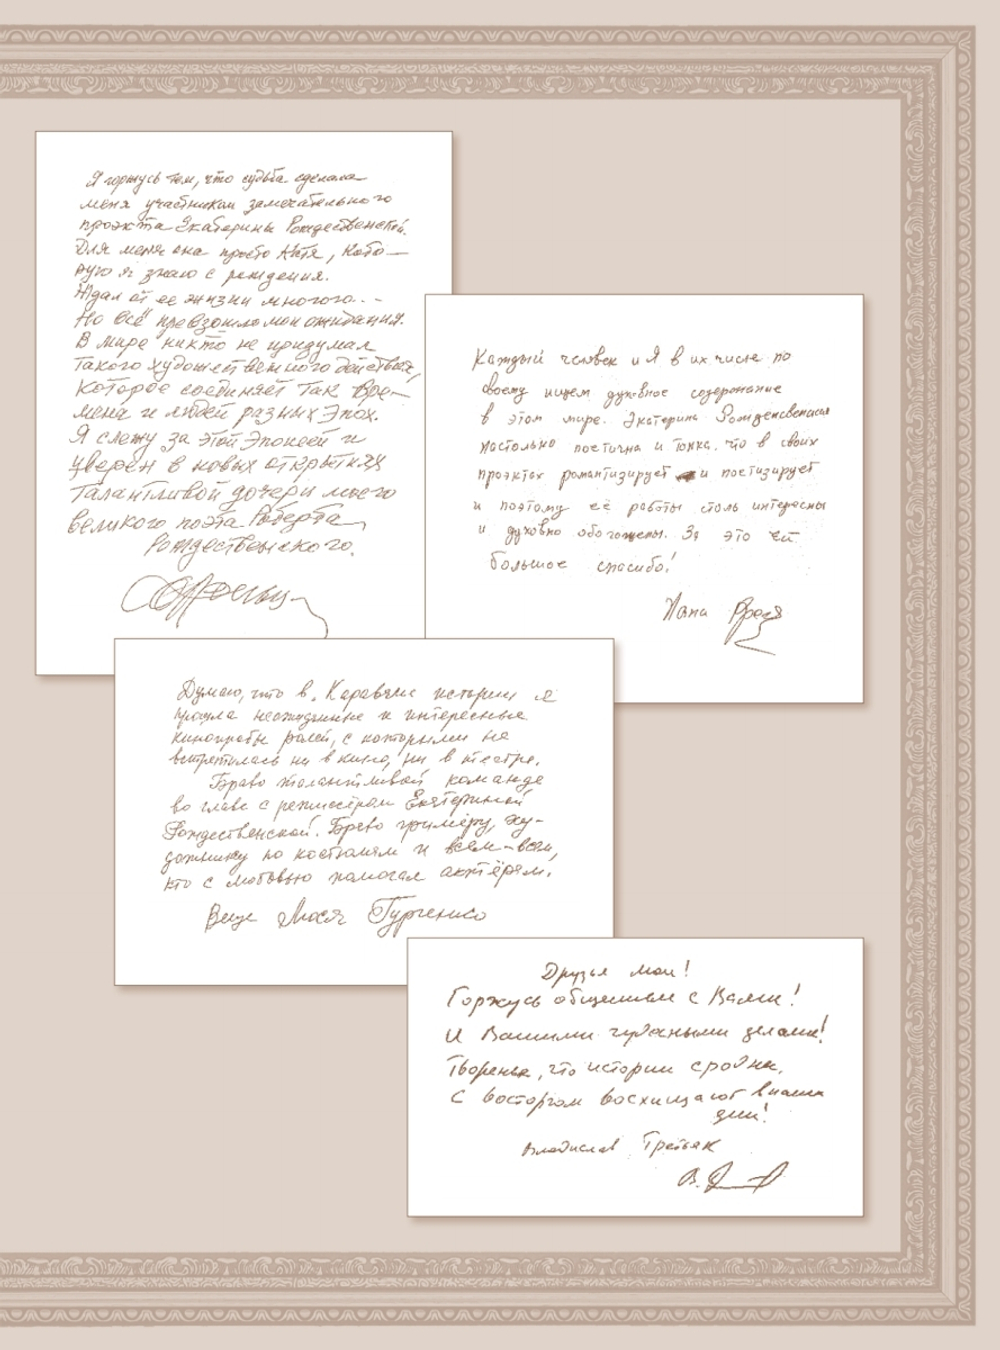 Я горжусь тем, что судьба сделала
меня участником замечательного
проэкта Екатерины Рождественской.
Для меня она просто Катя, кото—
рую я знаю с рождения.
Ждал от ее жизни многого...
Но всё превзошло мои ожидания.
В мире никто не придумал
такого художественного действия,
которое соединяет так вре—
мена и людей разных эпох.
Я слежу за этой эпопеей и
уверен в новых открытиях
талантливой дочери моего
великого поэта Роберта
Рождественского.
Каждый человек и я в их числе по
своему ищем духовное содержание
в этом мире. Екатерина Рождественская
настолько поэтична и тонка, что в своих
проэктах романтизирует и поэтизирует
и поэтому её работы столь интересны
и духовно обогожены. За это ей
большое спасибо!
Думаю, что в "Караване истории" я
прошла неожиданные и интересные
кинопробы ролей, с которыми не
встретилась ни в кино, ни в театре.
Браво талантливой команде
во главе с режиссёром Екатериной
Рождественской. Браво гримёру, ху-
дожнику по костюмам и всем-всем,
кто с любовью помогал актёрам.
Ваша Люся Гурченко
Друзья мои!
Горжусь общением с Вами!
И Вашими чудными делами!
Творенья, что истории сродни,
С восторгом восхищают в наши
дни!
Владислав Третьяк